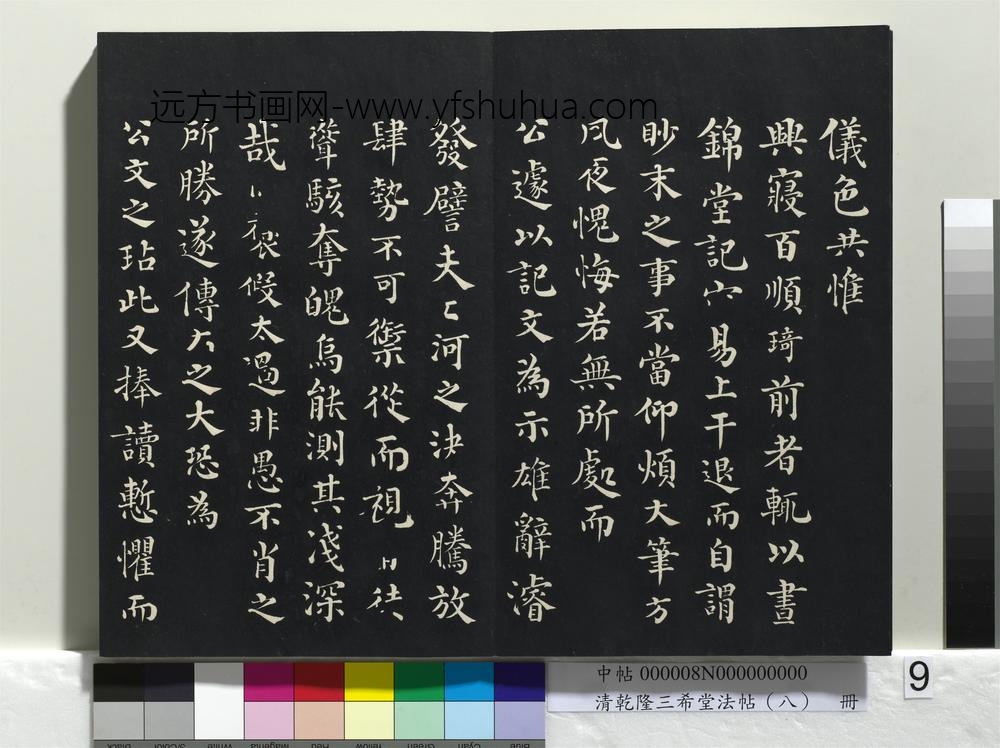 远方书画网-www.yfshuhua.com
儀色共惟
興寢百順琦前者輒以晝
錦堂記易上干退而自謂
眇末之事不當仰煩大筆方
夙夜愧悔若無所處而
公遽以記文為示雄辭濬
發譬夫河之決奔騰放
肆勢不可禦從而視
聳駭奪魄烏能測其淺深
哉假太過非愚不肖之
所勝遂傳之大恐為
公文之玷此又捧讀慙懼而
中帖 000008N000000000
清乾隆三希堂法帖（八） 冊
9
Black 3/Color White Magenta Red Yellow Green Cyan Blue